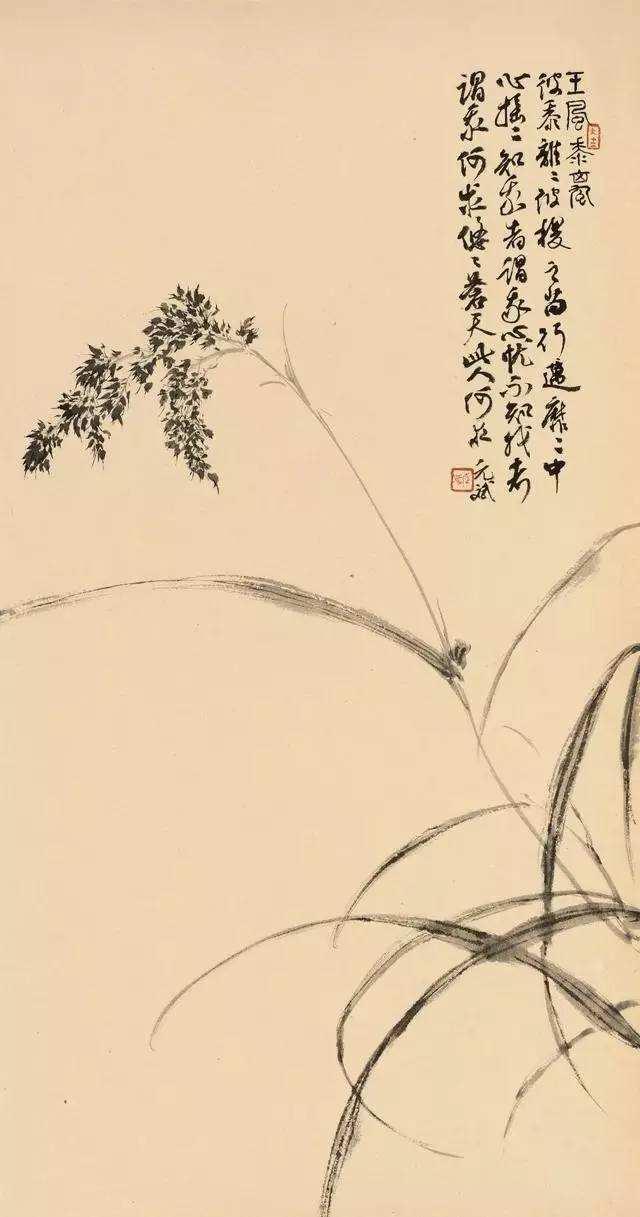 王風黍離
彼黍離〻彼稷之苗行邁靡〻中
心摇〻知我者謂我心忧不知我者
謂我何求悠〻蒼天此人何哉
元斌